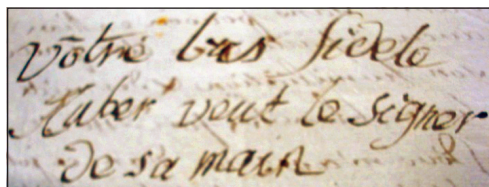 votre bras fidele
Auber veut le signer
de sa main